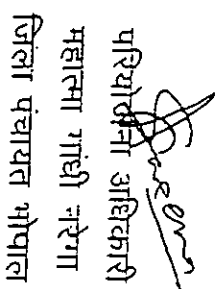 परियोजना अधिकारी
महात्मा गांधी नरेगा
जिला पंचायत भोपाल